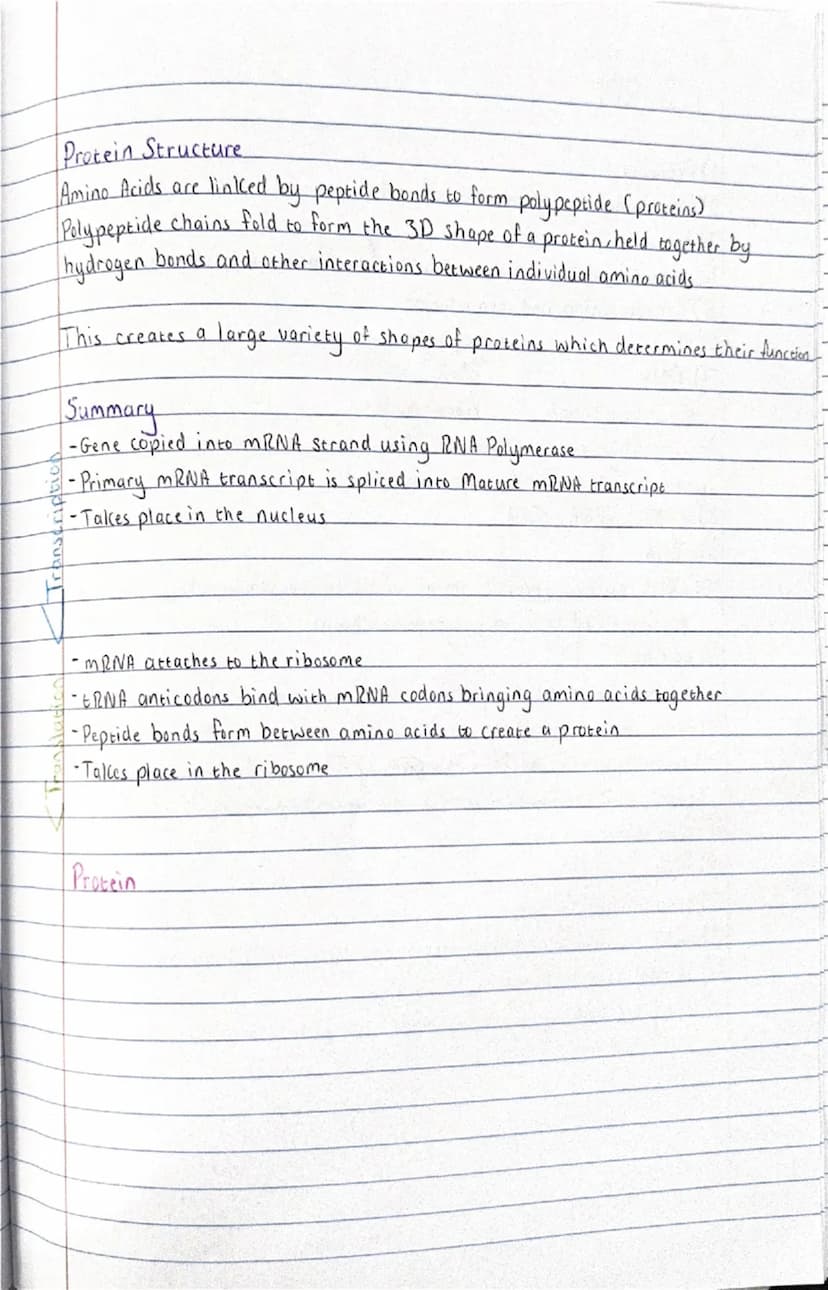 Protein Structure
Amino Acids are linked by peptide bonds to form polypeptide (proteins)
Polypeptide chains fold to form the 3D shape of a protein, held together by
hydrogen bonds and other interactions between individual amino acids
This creates a large variety of shapes of proteins which determines their function
Summary
Transcription
- Gene copied into mRNA strand using RNA Polymerase
- Primary mRNA transcript is spliced into Mature mRNA transcript
- Takes place in the nucleus
Translation
- mRNA attaches to the ribosome
- tRNA anticodons bind with mRNA codons bringing amino acids together
- Peptide bonds form between amino acids to create a protein
- Takes place in the ribosome
Protein